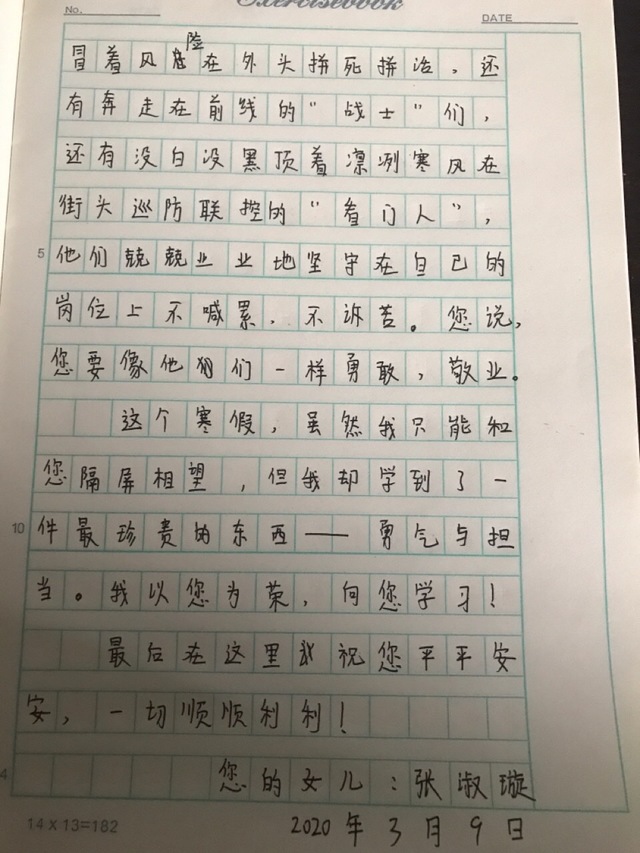 No.
Exercisebook
DATE
冒着风险在外头拼死拼治，还
有奔走在前线的“战士”们，
还有没白没黑顶着凛冽寒风在
街头巡防联控的“看门人”，
5 他们兢兢业业地坚守在自己的
岗位上不喊累，不诉苦。您说，
您要像他们一样勇敢，敬业。
这个寒假，虽然我只能和
您隔屏相望，但我却学到了一
10 件最珍贵的东西——勇气与担
当。我以您为荣，向您学习！
最后在这里我祝您平平安
安，一切顺顺利利！
4 您的女儿：张淑璇
14×13=182 2020年3月9日